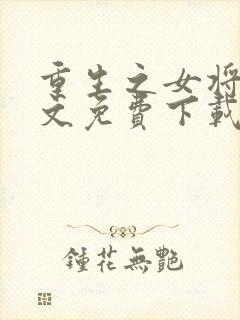 重生之女将
文免費下載
鍾花無艷